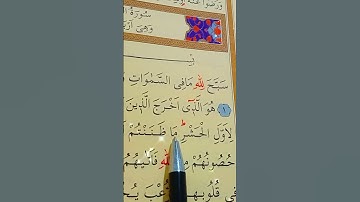 وَرَضُوا عَنْهُ
سُورَةُ
وَهِىَ
سَبَّحَ لِلّٰهِ مَا فِى السَّمٰوَاتِ
هُوَ الَّذٖٓى اَخْرَجَ الَّذٖينَ
لِاَوَّلِ الْحَشْرِؕ مَا ظَنَنْتُمْ
حُصُونُهُمْ اللّٰهِ فَاَتٰيهُمُ
فٖى قُلُوبِهِمُ الرُّعْبَ